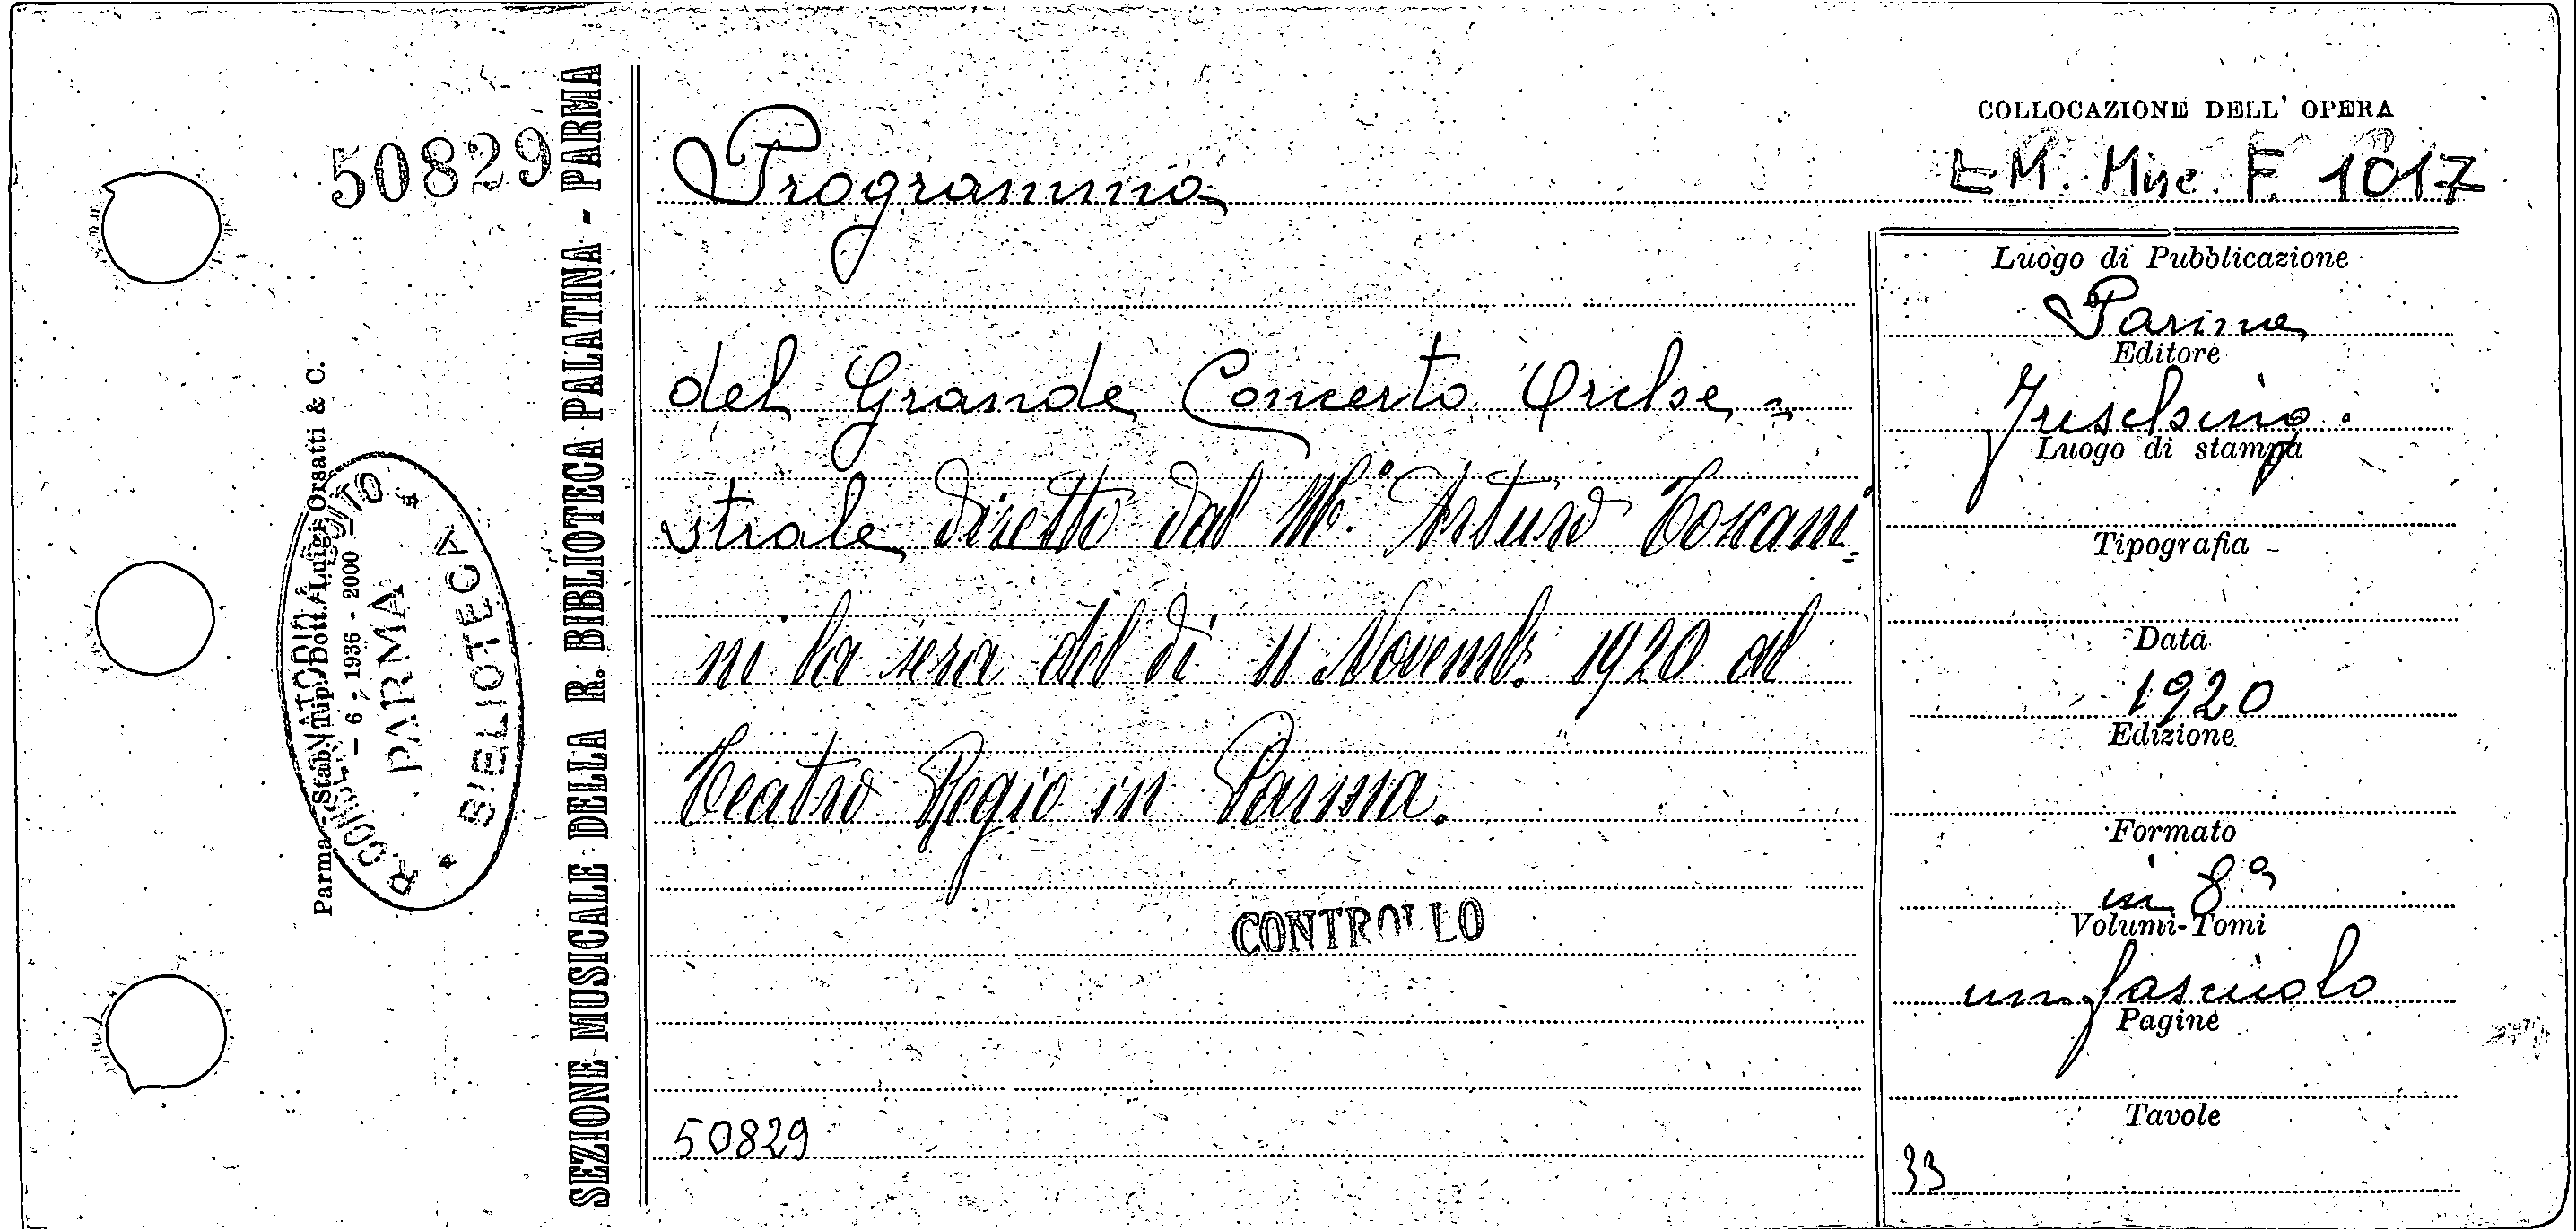 50829
SEZIONE MUSICALE DELLA R. BIBLIOTECA PALATINA - PARMA
Parma - Stab. Tip. Dott. Luigi Orsati & C.
- 6 - 1936 - 2000 -
PARMA
BIBLIOTECA
COLLOCAZIONE DELL' OPERA
M. Misc. F. 1017
Programma
del Grande Concerto Orche=
strale diretto dal M.° Arturo Toscani
ni la sera del dì 11 Novemb. 1920 al
Teatro Regio in Parma.
CONTROLLO
50829
Luogo di Pubblicazione
Parma
Editore
Fresching.
Luogo di stampa
Tipografia
Data
1920
Edizione
Formato
in 8°
Volumi-Tomi
un fascicolo
Pagine
Tavole
33